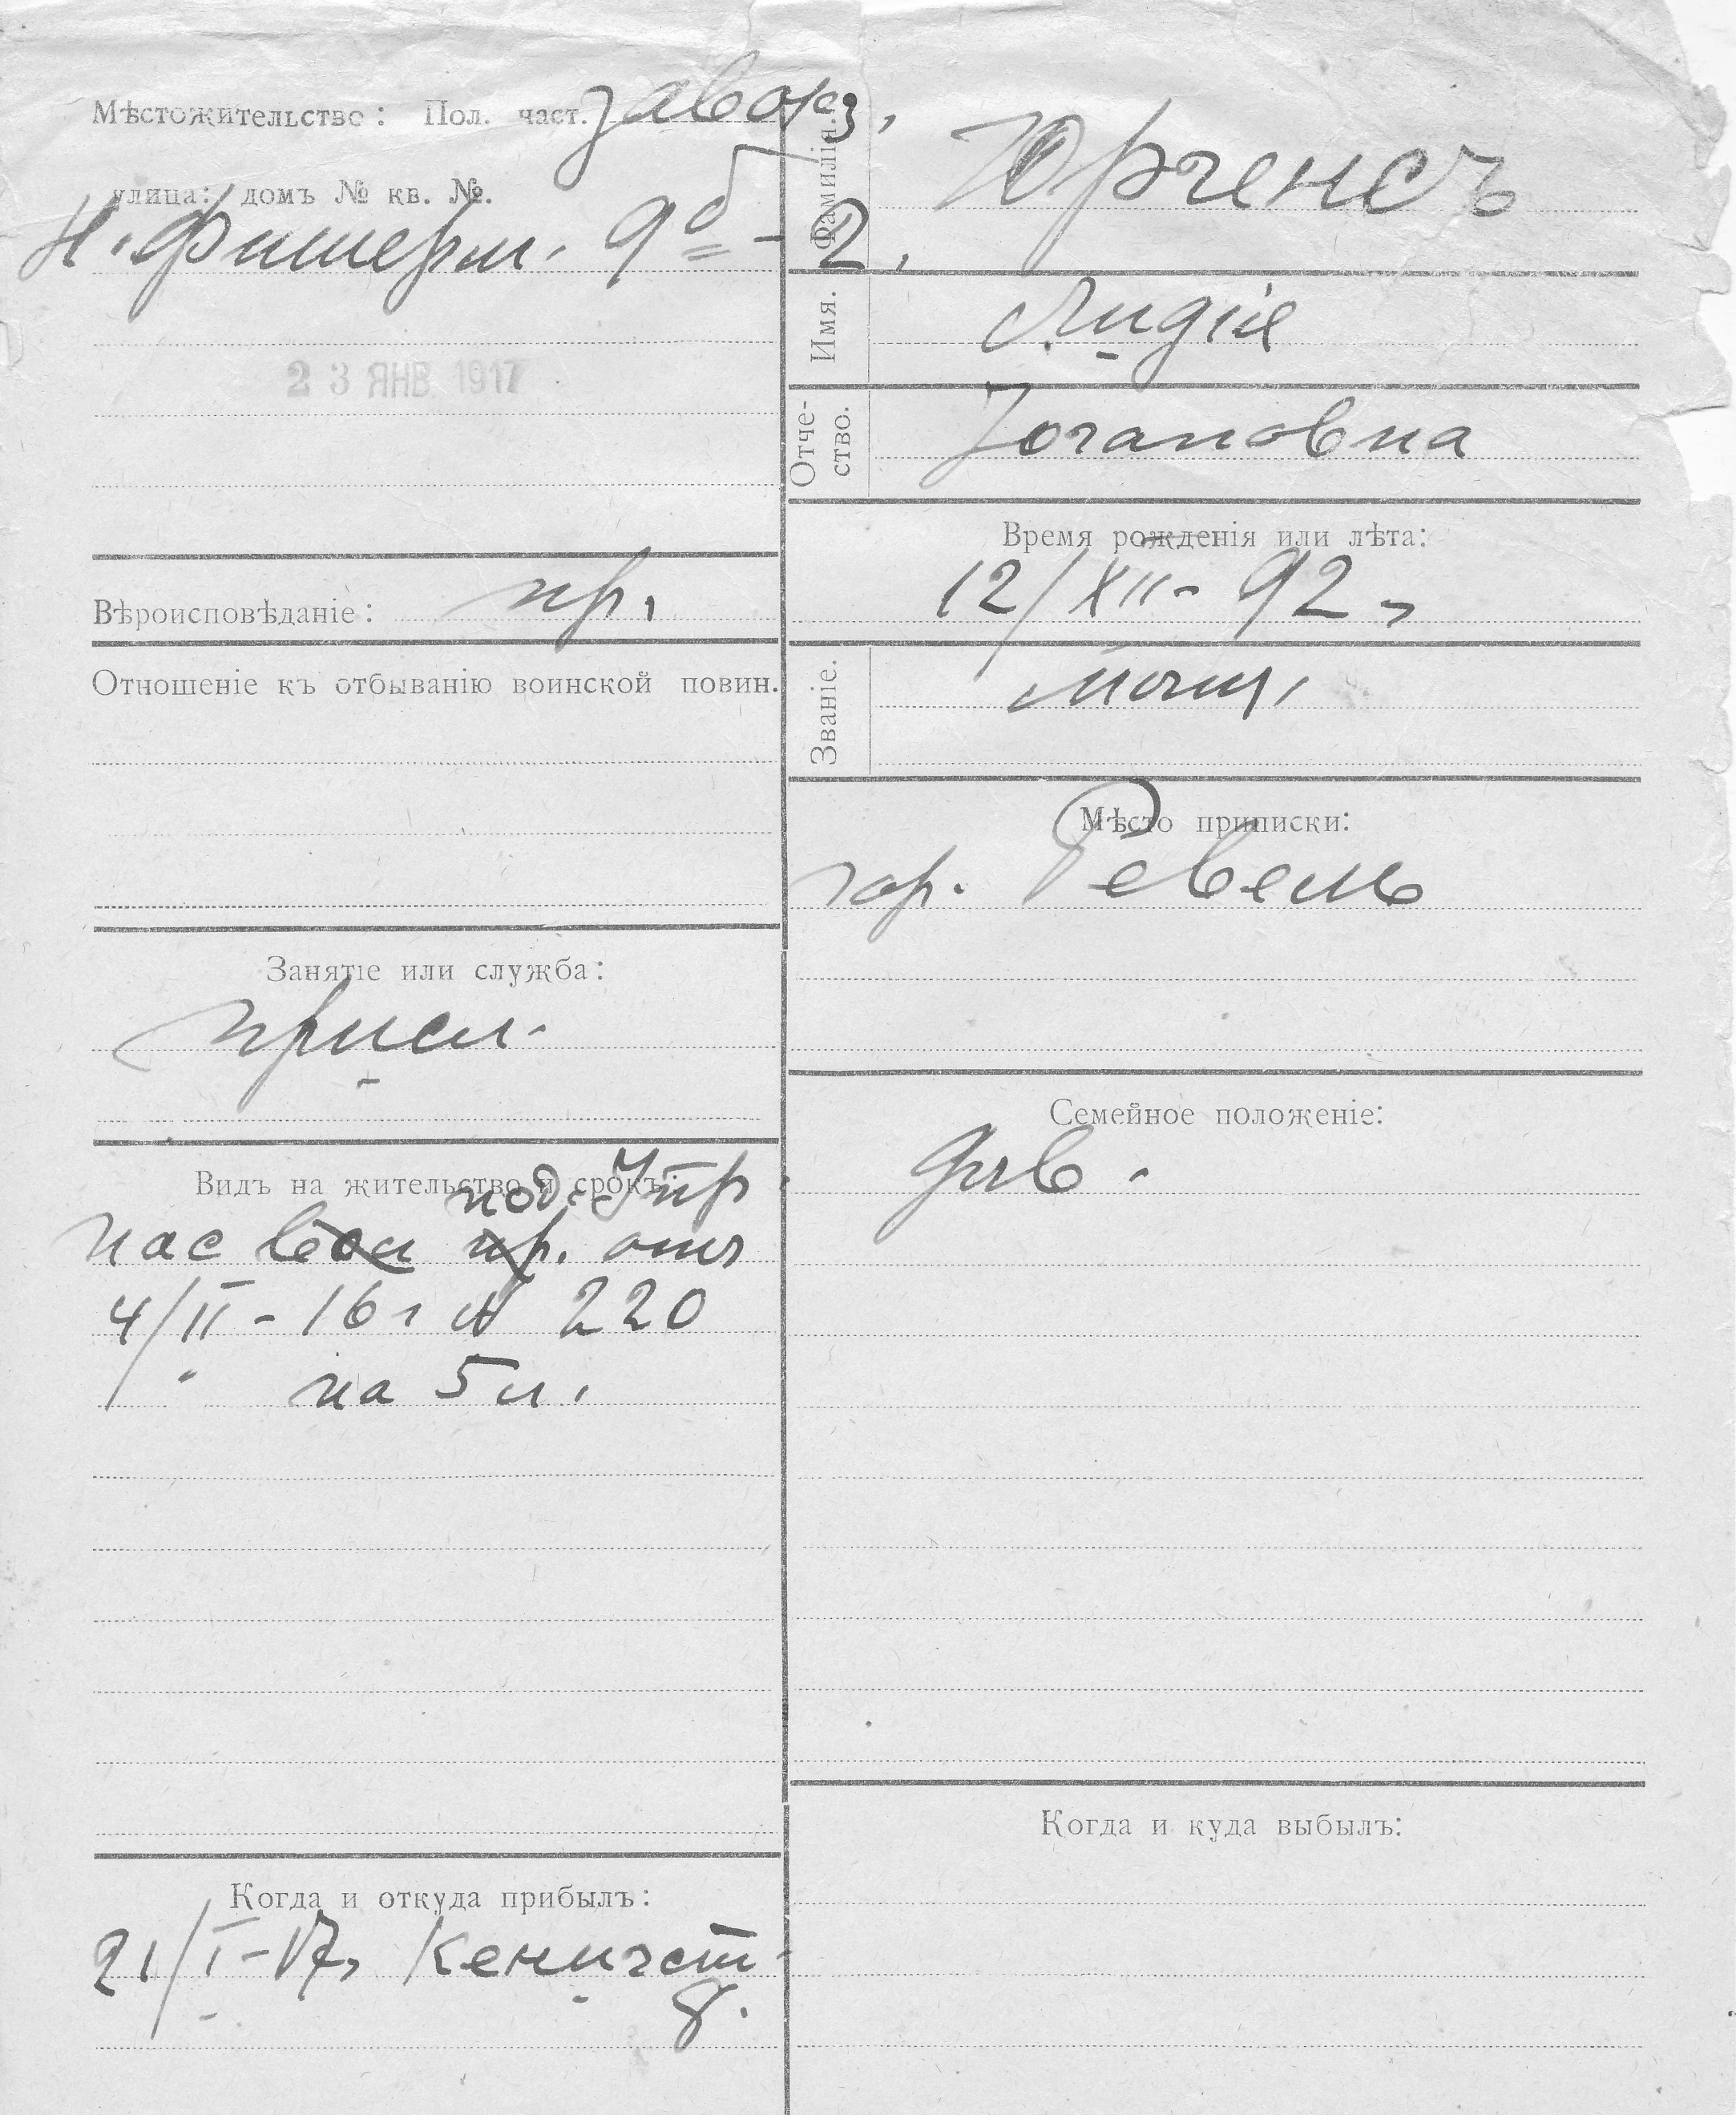 Мѣстожительство: Пол. част. завокз.
улица: домъ № кв. №.
Н. Фишерм. 9б - 2.
23 ЯНВ. 1917
Вѣроисповѣданіе: пр.
Отношеніе къ отбыванію воинской повин.
Занятіе или служба:
присл.
Видъ на жительство и срокъ:
под. Упр
пас вол пр. отъ
4/II - 16 г № 220
на 5 л.
Когда и откуда прибылъ:
21/I - 17, Кенигст
8.
Фамилія. Юргенсъ
Имя. Лидія
Отче-
ство. Іогановна
Время рожденія или лѣта:
12/XII - 92 г
Званіе. мѣщ.
Мѣсто приписки:
гор. Ревель
Семейное положеніе:
дѣв.
Когда и куда выбылъ: